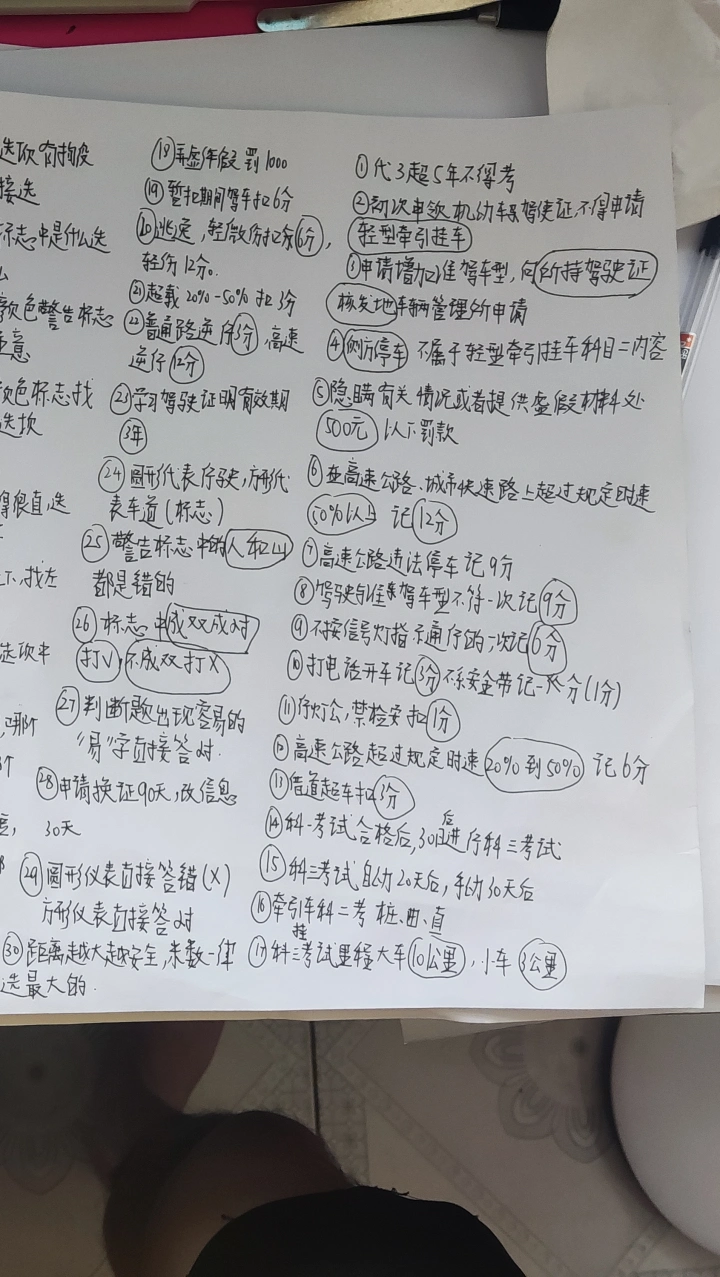 选项有拘役
接选
标志中是什么选
颜色警告标志
注意
颜色标志找
选项
得很直,选
下,找左
选项中
,哪个
度,
⑱弄虚作假罚1000
⑲暂扣期间驾车扣6分
⑳逃逸,轻微伤扣分6分,
轻伤12分。
㉑超载20%-50%扣3分
㉒普通路逆行3分,高速
逆行12分
㉓学习驾驶证明有效期
3年
㉔圆形代表行驶,方形代
表车道(标志)
㉕警告标志中的人和山
都是错的
㉖标志中成双成对
打√,不成双打X
㉗判断题出现容易的
“易”字直接答对.
㉘申请换证90天,改信息
30天
㉙圆形仪表直接答错(X)
方形仪表直接答对
㉚距离越大越安全,米数一律
选最大的.
①代3超5年不得考
②初次申领机动车驾驶证,不得申请
轻型牵引挂车
③申请增加准驾车型,向所持驾驶证
核发地车辆管理所申请
④侧方停车 不属于轻型牵引挂车科目二内容
⑤隐瞒有关情况或者提供虚假材料处
500元以下罚款
⑥在高速公路、城市快速路上超过规定时速
50%以上 记12分
⑦高速公路违法停车记9分
⑧驾驶与准驾车型不符一次记9分
⑨不按信号灯指示通行的一次记6分
⑩打电话开车记3分不系安全带记一分(1分)
⑪行灯会,禁检安扣1分
⑫高速公路超过规定时速20%到50% 记6分
⑬借道超车扣3分
⑭科一考试合格后,30日后进行科三考试
⑮科三考试自动20天后,手动30天后
⑯牵引挂车科二考桩、曲、直
⑰科三考试里程大车10公里,小车3公里